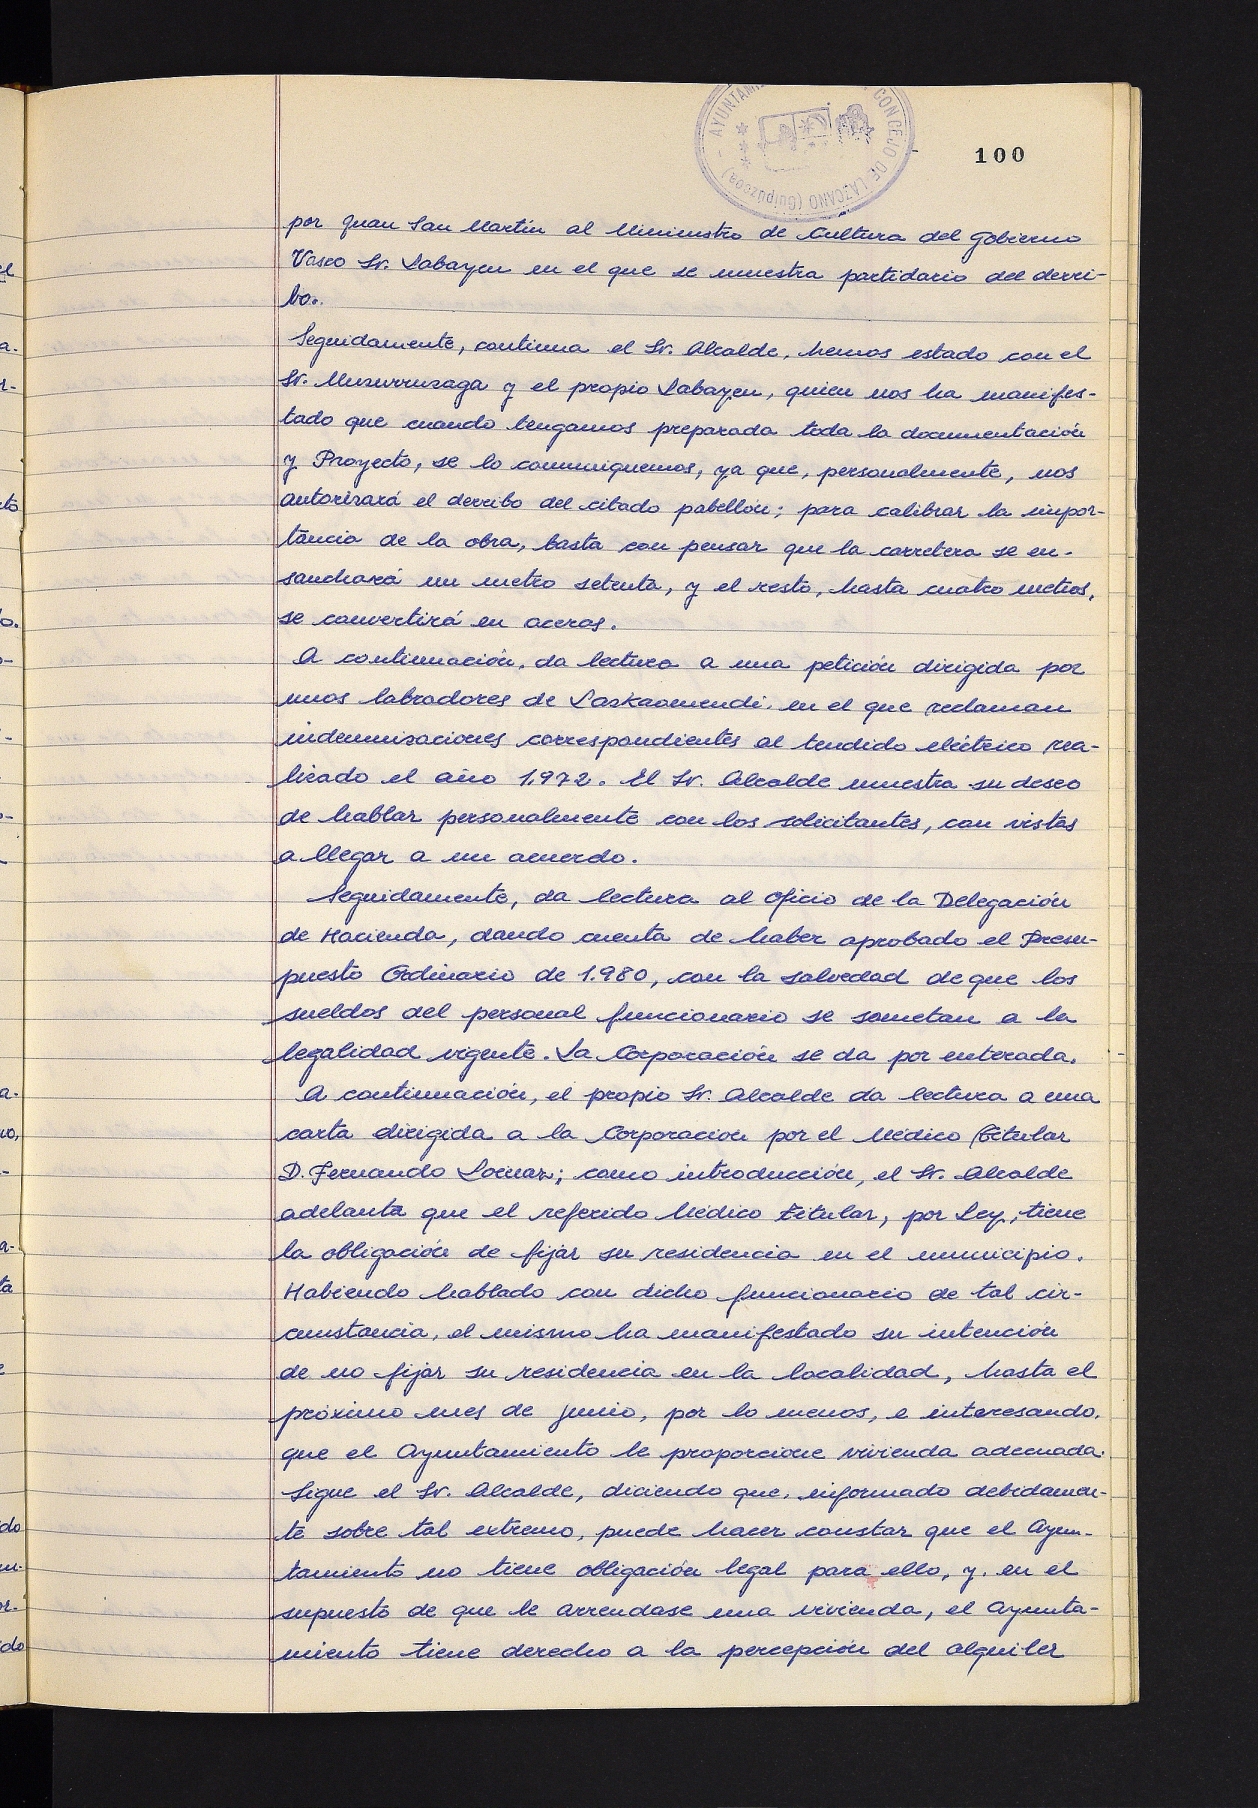 AYUNTAMI CONCEJO DE LAZCANO (Guipúzcoa)
100
por Juan San Martín al Ministro de Cultura del Gobierno
Vasco Sr. Labayen en el que se muestra partidario del derri-
bo.
Seguidamente, continua el Sr. Alcalde, hemos estado con el
Sr. Muzurruzaga y el propio Labayen, quien nos ha manifes-
tado que cuando tengamos preparada toda la documentación
y Proyecto, se lo comuniquemos, ya que, personalmente, nos
autorizará el derribo del citado pabellón; para calibrar la impor-
tancia de la obra, basta con pensar que la carretera se en-
sanchará un metro setenta, y el resto, hasta cuatro metros,
se convertirá en aceras.
A continuación, da lectura a una petición dirigida por
unos labradores de Lazkaomendi, en el que reclaman
indemnizaciones correspondientes al tendido eléctrico rea-
lizado el año 1.972. El Sr. Alcalde muestra su deseo
de hablar personalmente con los solicitantes, con vistas
a llegar a un acuerdo.
Seguidamente, da lectura al oficio de la Delegación
de Hacienda, dando cuenta de haber aprobado el Presu-
puesto Ordinario de 1.980, con la salvedad de que los
sueldos del personal funcionario se sometan a la
legalidad vigente. La Corporación se da por enterada.
A continuación, el propio Sr. Alcalde da lectura a una
carta dirigida a la Corporación por el Médico titular
D. Fernando Loinaz; como introducción, el Sr. Alcalde
adelanta que el referido Médico titular, por Ley, tiene
la obligación de fijar su residencia en el municipio.
Habiendo hablado con dicho funcionario de tal cir-
cunstancia, el mismo ha manifestado su intención
de no fijar su residencia en la localidad, hasta el
próximo mes de junio, por lo menos, e interesando,
que el Ayuntamiento le proporcione vivienda adecuada.
Sigue el Sr. Alcalde, diciendo que, informado debidamen-
te sobre tal extremo, puede hacer constar que el Ayun-
tamiento no tiene obligación legal para ello, y, en el
supuesto de que le arrendase una vivienda, el Ayunta-
miento tiene derecho a la percepción del alquiler